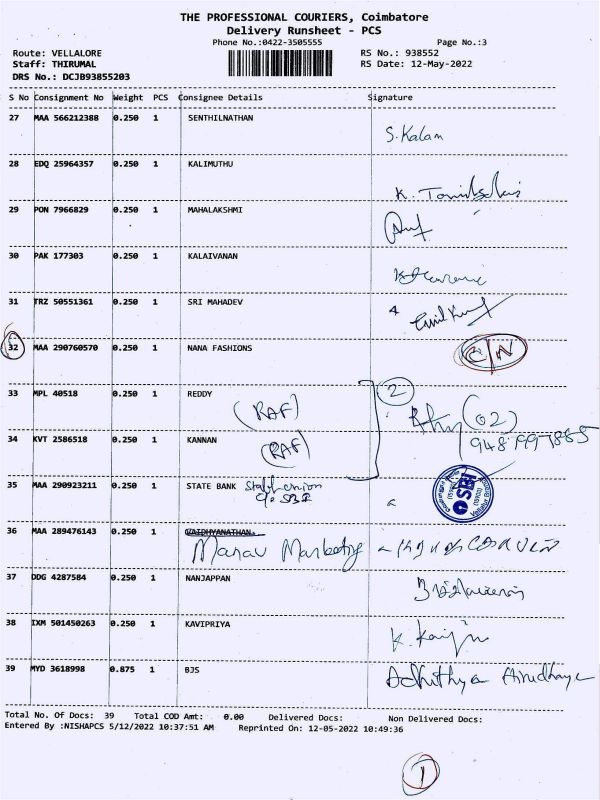 THE PROFESSIONAL COURIERS, Coimbatore
Delivery Runsheet - PCS
Phone No.:0422-3505555 Page No.:3
Route: VELLALORE RS No.: 938552
Staff: THIRUMAL RS Date: 12-May-2022
DRS No.: DCJB93855203
S No Consignment No Weight PCS Consignee Details Signature
27 MAA 566212388 0.250 1 SENTHILNATHAN
S.Kalam
28 EDQ 25964357 0.250 1 KALIMUTHU
K.
29 PON 7966829 0.250 1 MAHALAKSHMI
30 PAK 177303 0.250 1 KALAIVANAN
31 TRZ 50551361 0.250 1 SRI MAHADEV
32 MAA 290760570 0.250 1 NANA FASHIONS C/N
33 MPL 40518 0.250 1 REDDY 2
(RAF) (02)
34 KVT 2586518 0.250 1 KANNAN
(RAF)
35 MAA 290923211 0.250 1 STATE BANK Staff union
C/o SBI SBI
36 MAA 289476143 0.250 1 VAIDHYANATHAN
Manav Marketing
37 DDG 4287584 0.250 1 NANJAPPAN
38 IXM 501450263 0.250 1 KAVIPRIYA
K.
39 MYD 3618998 0.875 1 BJS Adhithya
Total No. Of Docs: 39 Total COD Amt: 0.00 Delivered Docs: Non Delivered Docs:
Entered By :NISHAPCS 5/12/2022 10:37:51 AM Reprinted On: 12-05-2022 10:49:36
1